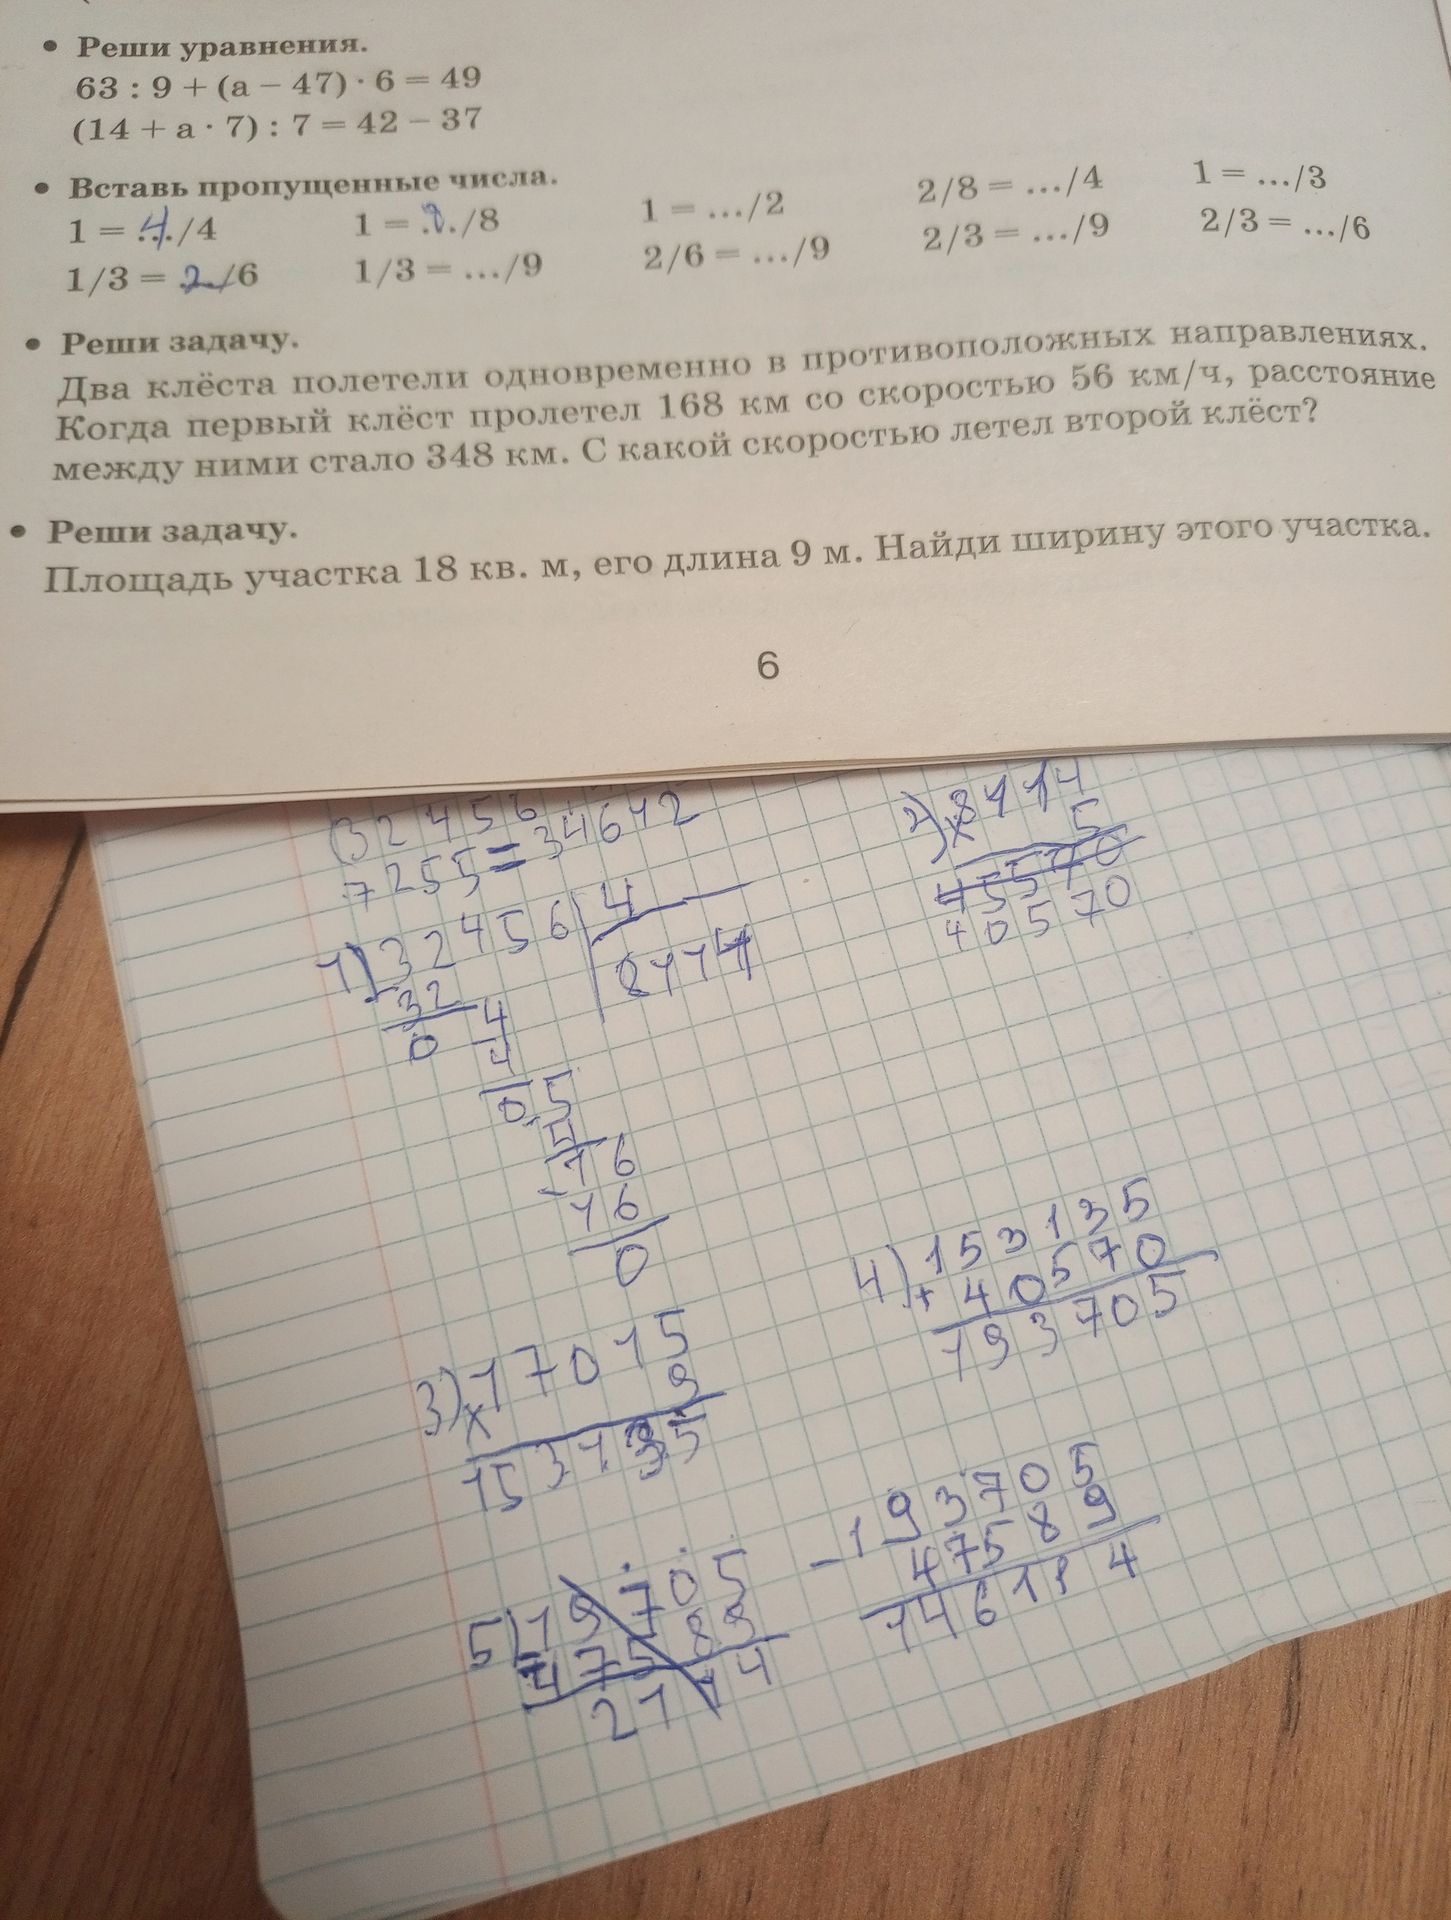 • Реши уравнения.
63 : 9 + (а – 47) · 6 = 49
(14 + а · 7) : 7 = 42 – 37
• Вставь пропущенные числа.
1 = 4/4 1 = 8/8 1 = .../2 2/8 = .../4 1 = .../3
1/3 = 2/6 1/3 = .../9 2/6 = .../9 2/3 = .../9 2/3 = .../6
• Реши задачу.
Два клёста полетели одновременно в противоположных направлениях.
Когда первый клёст пролетел 168 км со скоростью 56 км/ч, расстояние
между ними стало 348 км. С какой скоростью летел второй клёст?
• Реши задачу.
Площадь участка 18 кв. м, его длина 9 м. Найди ширину этого участка.
6
(32456
7255=34612
1) 32456 4
32 8114
0 4
4
0 5
16
16
0
2) x 8114
5
45570
40570
3) x 17015
9
153135
4) + 153135
40570
193705
5) 19705
47589
2114
– 193705
47589
146114